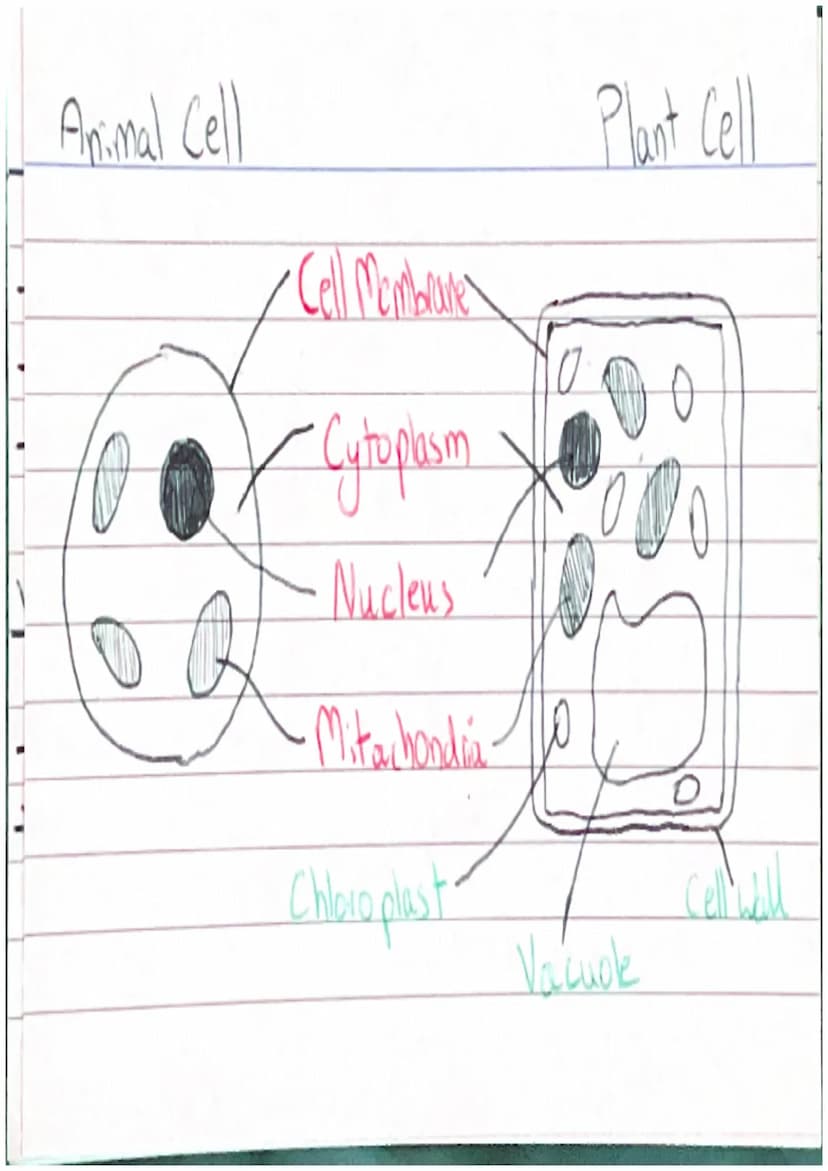 Animal Cell
Plant Cell
Cell Membrane
Cytoplasm
Nucleus
Mitachondria
Chloroplast
Cell wall
Vacuole